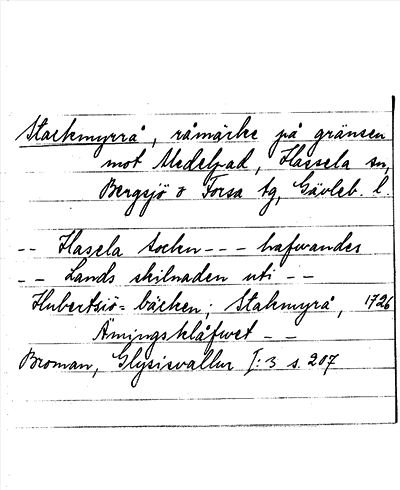 Starkmyrrå, råmärke på gränsen
mot Medelpad, Hassela sn,
Bergsjö o Forsa tg, Gävleb. l.
-- Hasela Sockn - - - hafwandes
-- Lands skilnaden uti --
Hubertsiö-bäcken; Stakmyrå, 1726
Åmingsklåfwet --
Broman, Glysisvallur I:3 s. 207